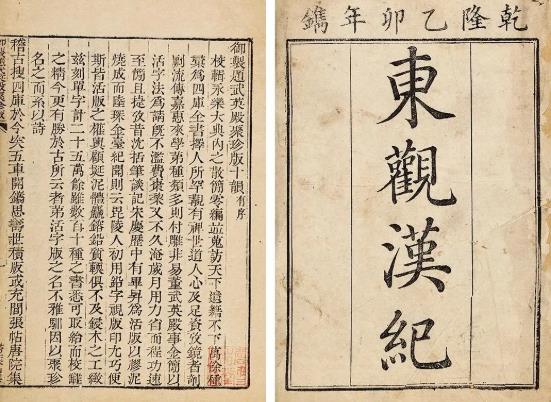 乾隆乙卯年鐫
東觀漢紀
御製題武英殿聚珍版十韻有序
校輯永樂大典內之散簡零編並蒐訪天下遺籍不下萬餘種
彚為四庫全書擇人所罕覯有裨世道人心及足資攷鏡者剞
劂流傳嘉惠來學第種類多則付雕非易董武英殿事金簡以
活字法為請既不濫費棗棃又不久淹歲月用力省而程功速
至簡且捷攷昔沈括筆談記宋慶歷中有畢昇為活版以膠泥
燒成而陸深金臺紀聞則云毘陵人初用鉛字視版印尤巧便
斯皆活版之權輿顧埏泥體麤鎔鉛質輭俱不及鋟木之工緻
茲刻單字計二十五萬餘雖數百十種之書悉可取給而校讎
之精今更有勝於古所云者第活字版之名不雅馴因以聚珍
名之而系以詩
稽古搜四庫於今突五車開鐫思壽世積版或充閭張帖唐院集